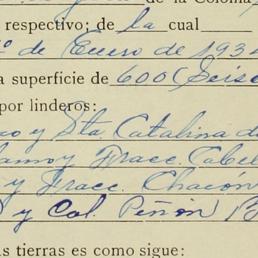 de la Colonia
respectivo; de la cual
1º de Enero de 193
a superficie de 600 (Seise
por linderos:
co y Sta. Catalina d
y Fracc. Cabe
y Fracc. Chacón
y Col. Peñón B
s tierras es como sigue: